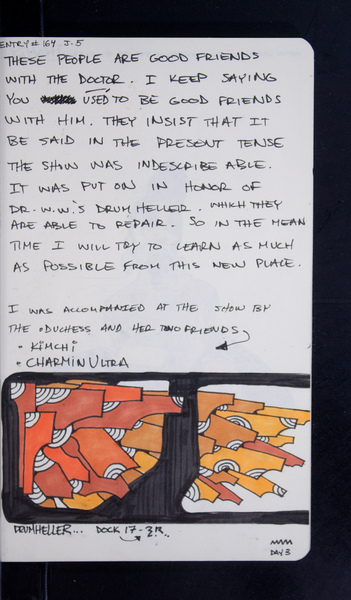 ENTRY # 164 J-5
THESE PEOPLE ARE GOOD FRIENDS
WITH THE DOCTOR. I KEEP SAYING
YOU USED TO BE GOOD FRIENDS
WITH HIM. THEY INSIST THAT IT
BE SAID IN THE PRESENT TENSE
THE SHOW WAS INDESCRIBE ABLE.
IT WAS PUT ON IN HONOR OF
DR. W.W.'S DRUM HELLER. WHICH THEY
ARE ABLE TO REPAIR. SO IN THE MEAN
TIME I WILL TRY TO LEARN AS MUCH
AS POSSIBLE FROM THIS NEW PLACE.
I WAS ACCOMPANIED AT THE SHOW BY
THE DUCHESS AND HER TWO FRIENDS
• KIMCHI
• CHARMIN ULTRA
DRUMHELLER... DOCK 17-
DAY 3